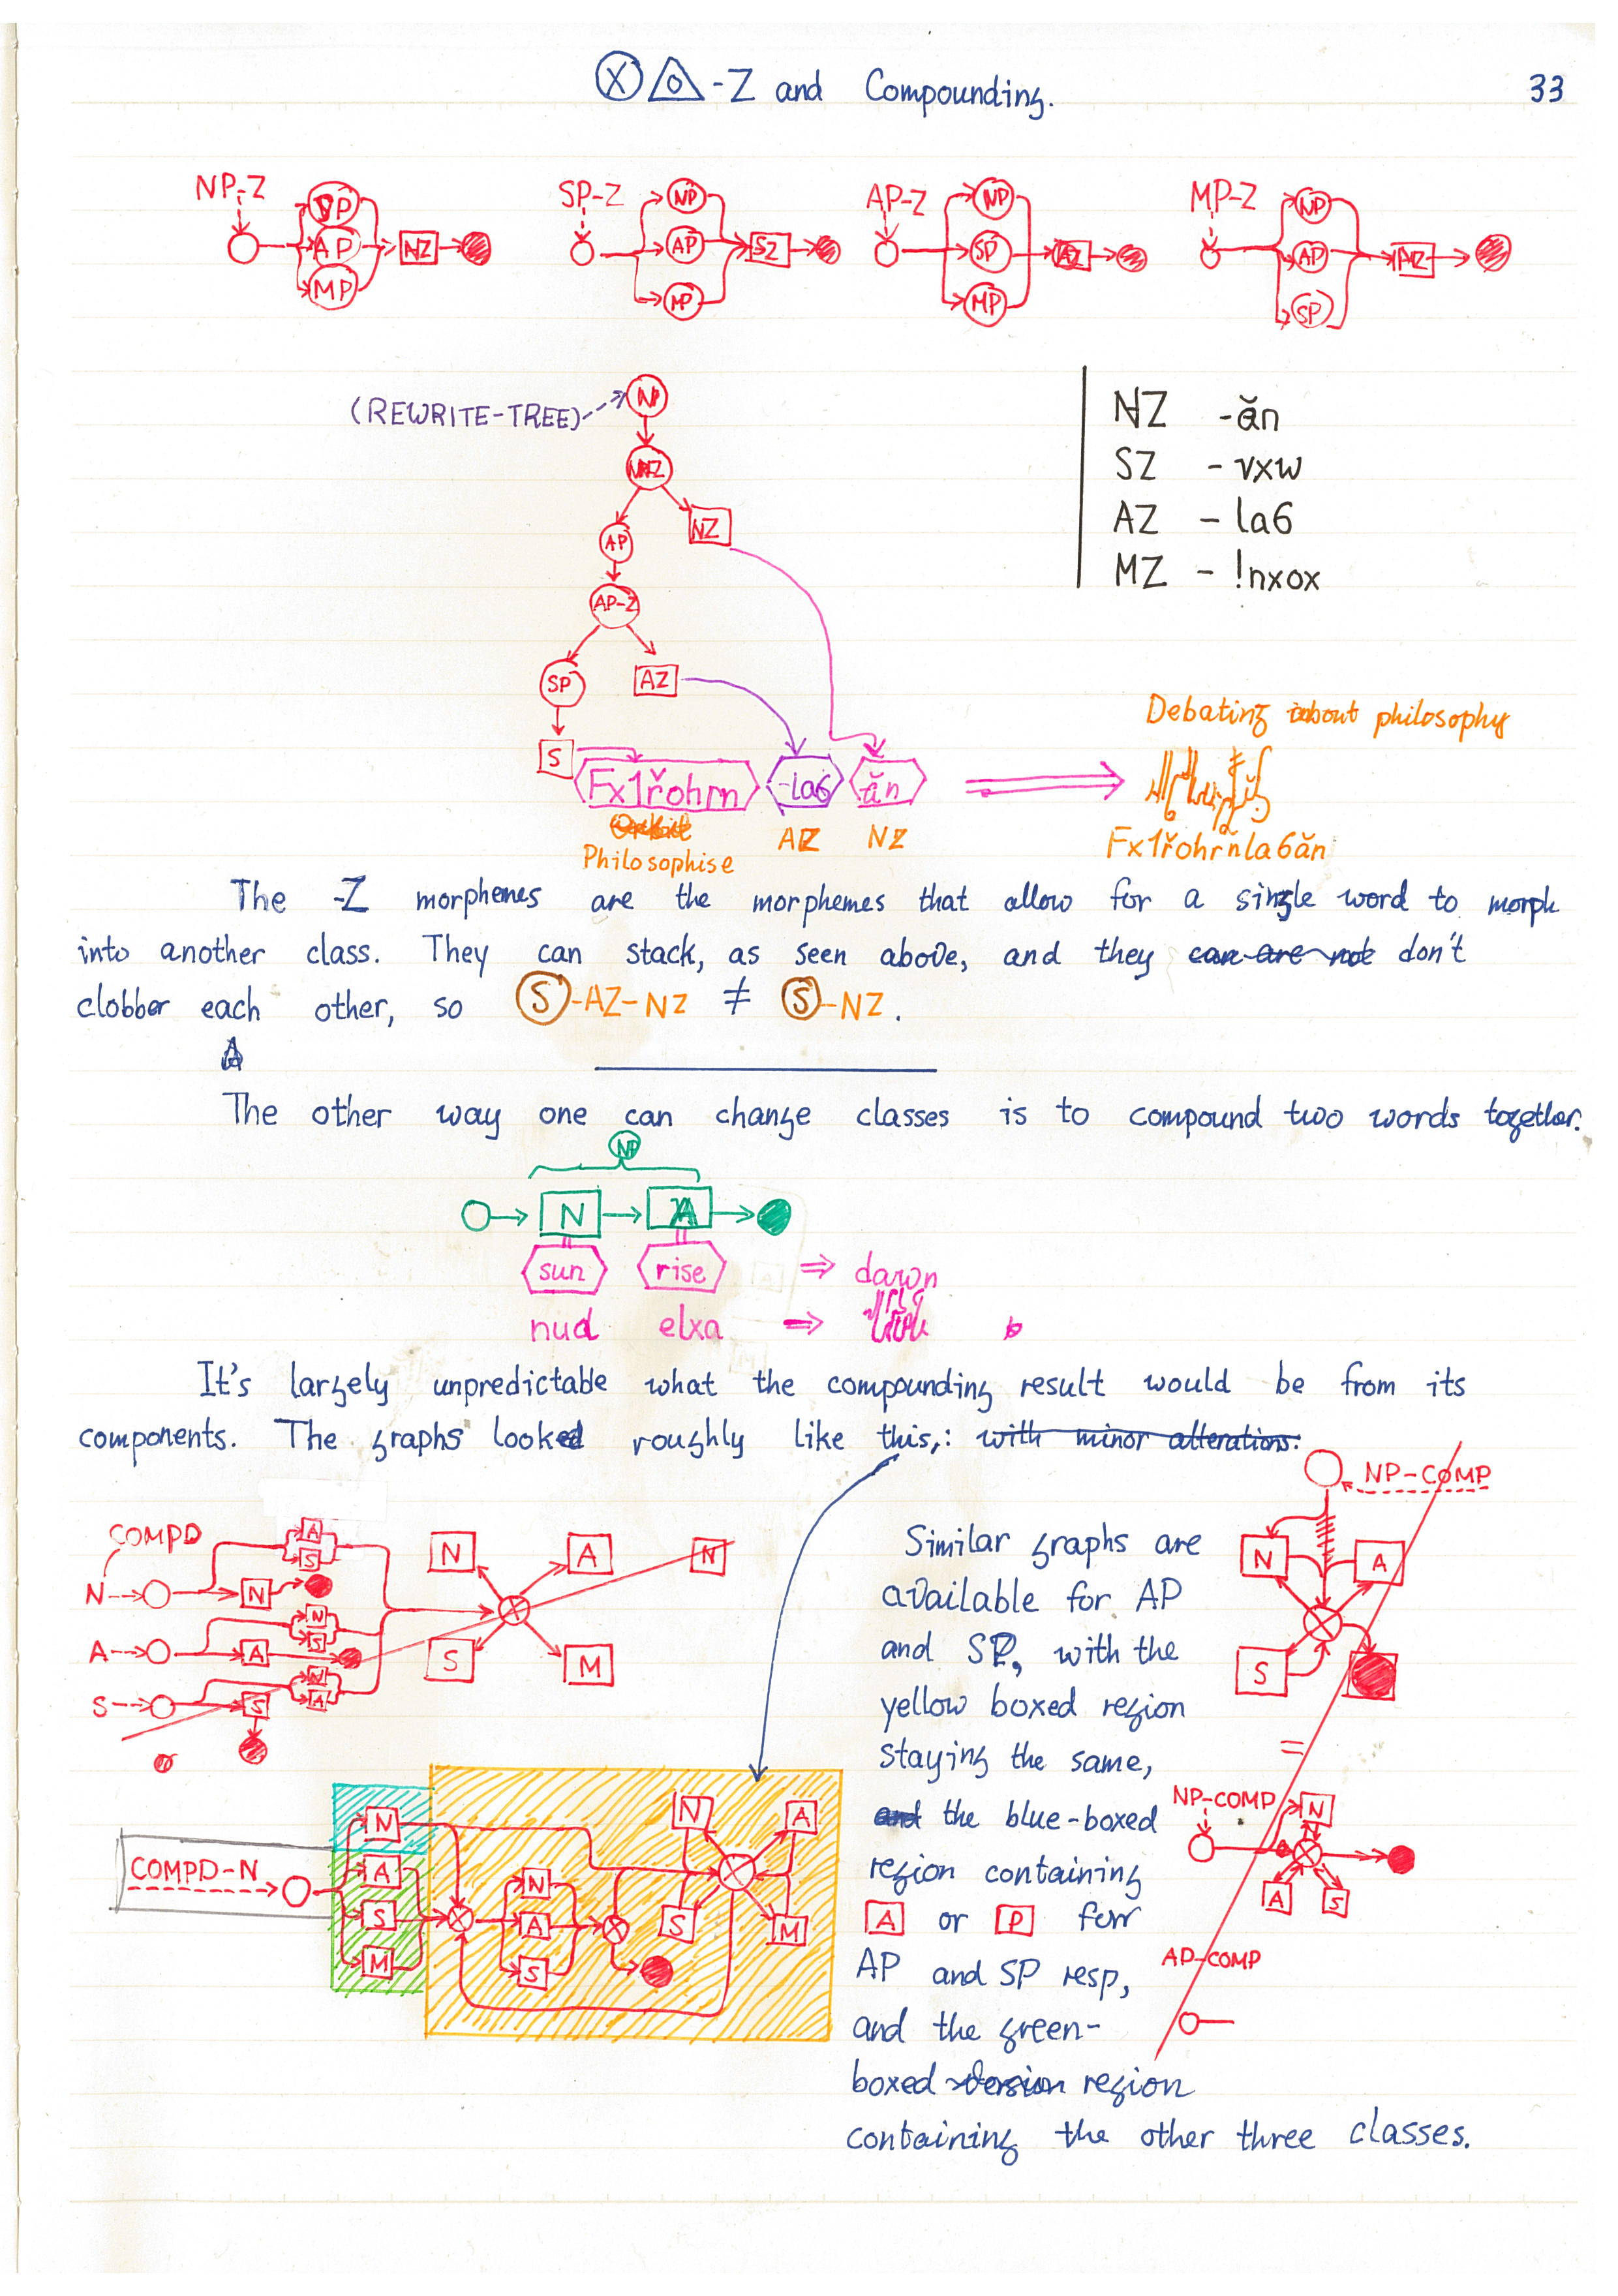 ⓍⒶ-Z and Compounding.
33
NP-Z
SP-Z
AP-Z
MP-Z
SP AP MP NZ
NP AP MP SZ
NP SP MP AZ
NP AP SP MZ
(REWRITE-TREE)
NP
NP-Z
AP
NZ
AP-Z
SP
AZ
S
NZ -ăn
SZ - vxw
AZ - la6
MZ - !nxox
Debating about philosophy
Fx1řohrn -la6 ăn
Philosophise AZ NZ
Fx1řohrňla6ăn
The -Z morphemes are the morphemes that allow for a single word to morph
into another class. They can stack, as seen above, and they can are not don't
clobber each other, so Ⓢ-AZ-NZ ≠ Ⓢ-NZ.
The other way one can change classes is to compound two words together.
NP
N A
sun rise ⇒ dawn
nud elxa ⇒
It's largely unpredictable what the compounding result would be from its
components. The graphs looked roughly like this,: with minor alterations:
COMPD
N
A
S
A S N
N S A
N A S
N A N
S M
NP-COMP
N A
S
=
NP-COMP
N
A S
AP-COMP
Similar graphs are
available for AP
and SP, with the
yellow boxed region
staying the same,
and the blue-boxed
region containing
A or P for
AP and SP resp,
and the green-
boxed version region
containing the other three classes.
COMPD-N
N
A
S
M
N
A
S
N A
S M